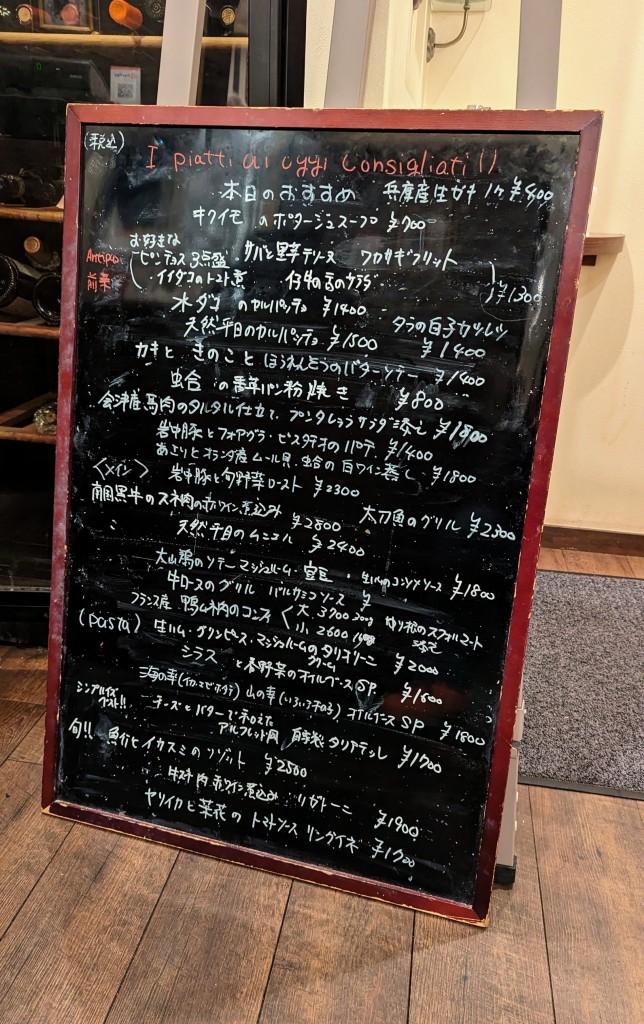 (税込)
I piatti di oggi consigliati!!
本日のおすすめ 兵庫産生ガキ 1ケ ¥400
キクイモ のポタージュスープ ¥700
Antipasto
前菜
お好きな
ピンチョス 3点盛 サバと里芋テリーヌ ワカサギフリット
イイダコのトマト煮 仔牛の舌のサラダ
¥1300
水ダコ のカルパッチョ ¥1400
天然平目のカルパッチョ ¥1500 タラの白子カツレツ
¥1400
カキと きのこと ほうれんそうのバターソテー ¥1400
蛤 の香草パン粉焼き ¥800
会津産馬肉のタルタル仕立て、プンタレッラサラダ添え ¥1800
岩中豚とフォアグラ・ピスタチオのパテ ¥1400
あさりとオランダ産ムール貝、蛤の白ワイン蒸し ¥1800
<メイン> 岩中豚と旬野菜ロースト ¥2300
黒牛のスネ肉の赤ワイン煮込み ¥2800 太刀魚のグリル ¥2300
天然平目のムニエル ¥2400
大山鶏のソテー マッシュルーム・ 生ハムのコンソメソース ¥1800
牛ロースのグリル バルサミコソース ¥
フランス産 鴨ムネ肉のコンフィ 大 3900 300g
小 2600
(Pasta) 生ハム・グリンピース・マッシュルームのタリオリーニ
クリーム ¥2000
シラス と春野菜のオイルソースSP ¥1600
海の幸(イカ・エビ・ホタテ) 山の幸(いろいろキノコ) オイルソースSP ¥1800
シンプルイズ
ベスト!!
チーズとバターで和えた
アルフレッド風 自家製タリアテッレ ¥1700
旬!! 魚介とイカスミのリゾット ¥2500
牛スネ肉 赤ワイン煮込み リガトーニ ¥1900
ヤリイカと菜花の トマトソース リングイネ ¥1700